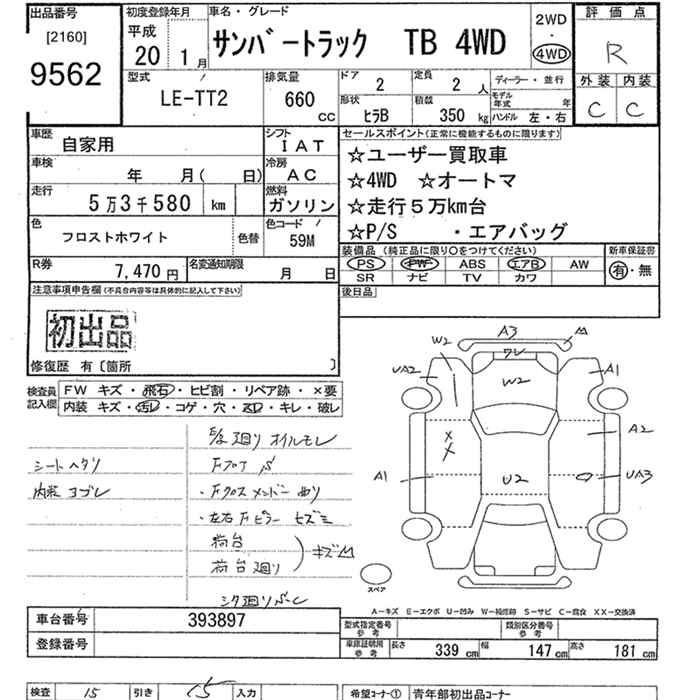 出品番号
[2160]
9562
初度登録年月
平成
20 1月
車名・グレード
サンバートラック TB 4WD
2WD
・
4WD
評価点
R
型式
LE-TT2
排気量
660
CC
ドア
2
定員
2 人
形状
ヒラB
積載
350 kg
ディーラー・並行
モデル年式 年
ハンドル 左・右
外装 内装
C C
車歴
自家用
シフト
IAT
車検
年 月( 日)
冷房
AC
走行
5万3千580 km
燃料
ガソリン
色
フロストホワイト
色替
色コード
59M
R券
7,470円
名変通知期限
月 日
セールスポイント(正常に機能するものに限ります)
☆ユーザー買取車
☆4WD ☆オートマ
☆走行5万km台
☆P/S ・エアバッグ
装備品(純正品に限り○をつけてください)
PS PW ABS エアB AW
SR ナビ TV カワ
新車保証書
有・無
後日品
注意事項申告欄(不具合内容等は具体的に記入して下さい)
初出品
修復歴 有〔箇所 〕
検査員
記入欄
FW キズ・飛石・ヒビ割・リペア跡・×要
内装 キズ・汚レ・コゲ・穴・スレ・キレ・破レ
シートヘタリ
内装ヨゴレ
廻りオイルモレ
・Fクロスメンバー
・左右Fピラー
荷台
荷台廻り
キズ
A3
W2
ワレ
W2
UA2
A1
A1
A2
U2
UA3
スペア
A-キズ E-エクボ U-凹み W-補修跡 S-サビ C-腐食 XX-交換済
車台番号
393897
登録番号
型式指定番号
参考
類別区分番号
参考
車庫証明用
参考
長さ 339 cm
幅 147 cm
高さ 181 cm
検査 15
引き 15
入力
希望コーナー① 青年部初出品コーナー